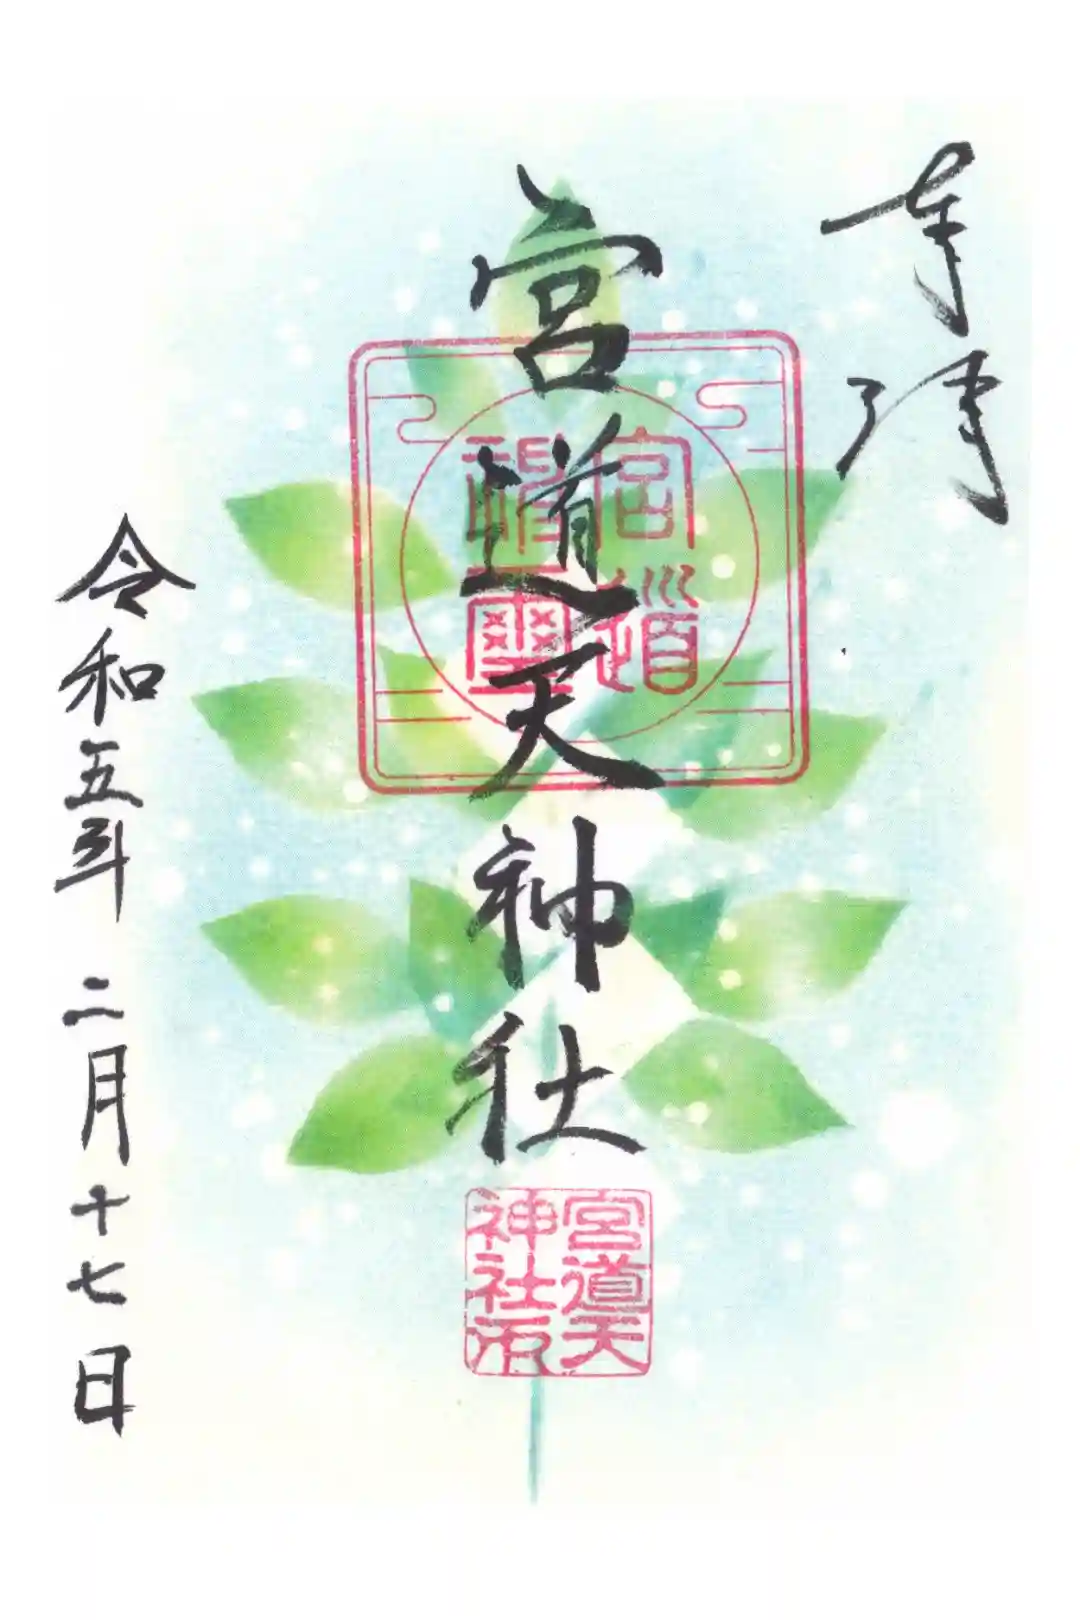 奉拝
宮道天神社
宮道
神璽
宮道天
神社印
令和五年二月十七日